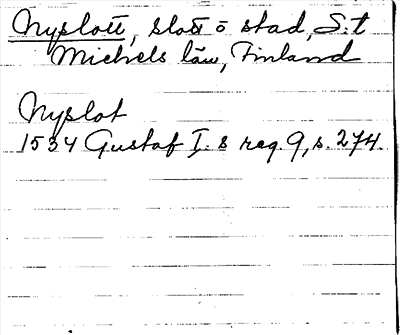 Nyslott, slott o stad, S:t
Michels län, Finland
Nyslot
1534 Gustaf I.s reg. 9, s. 274.